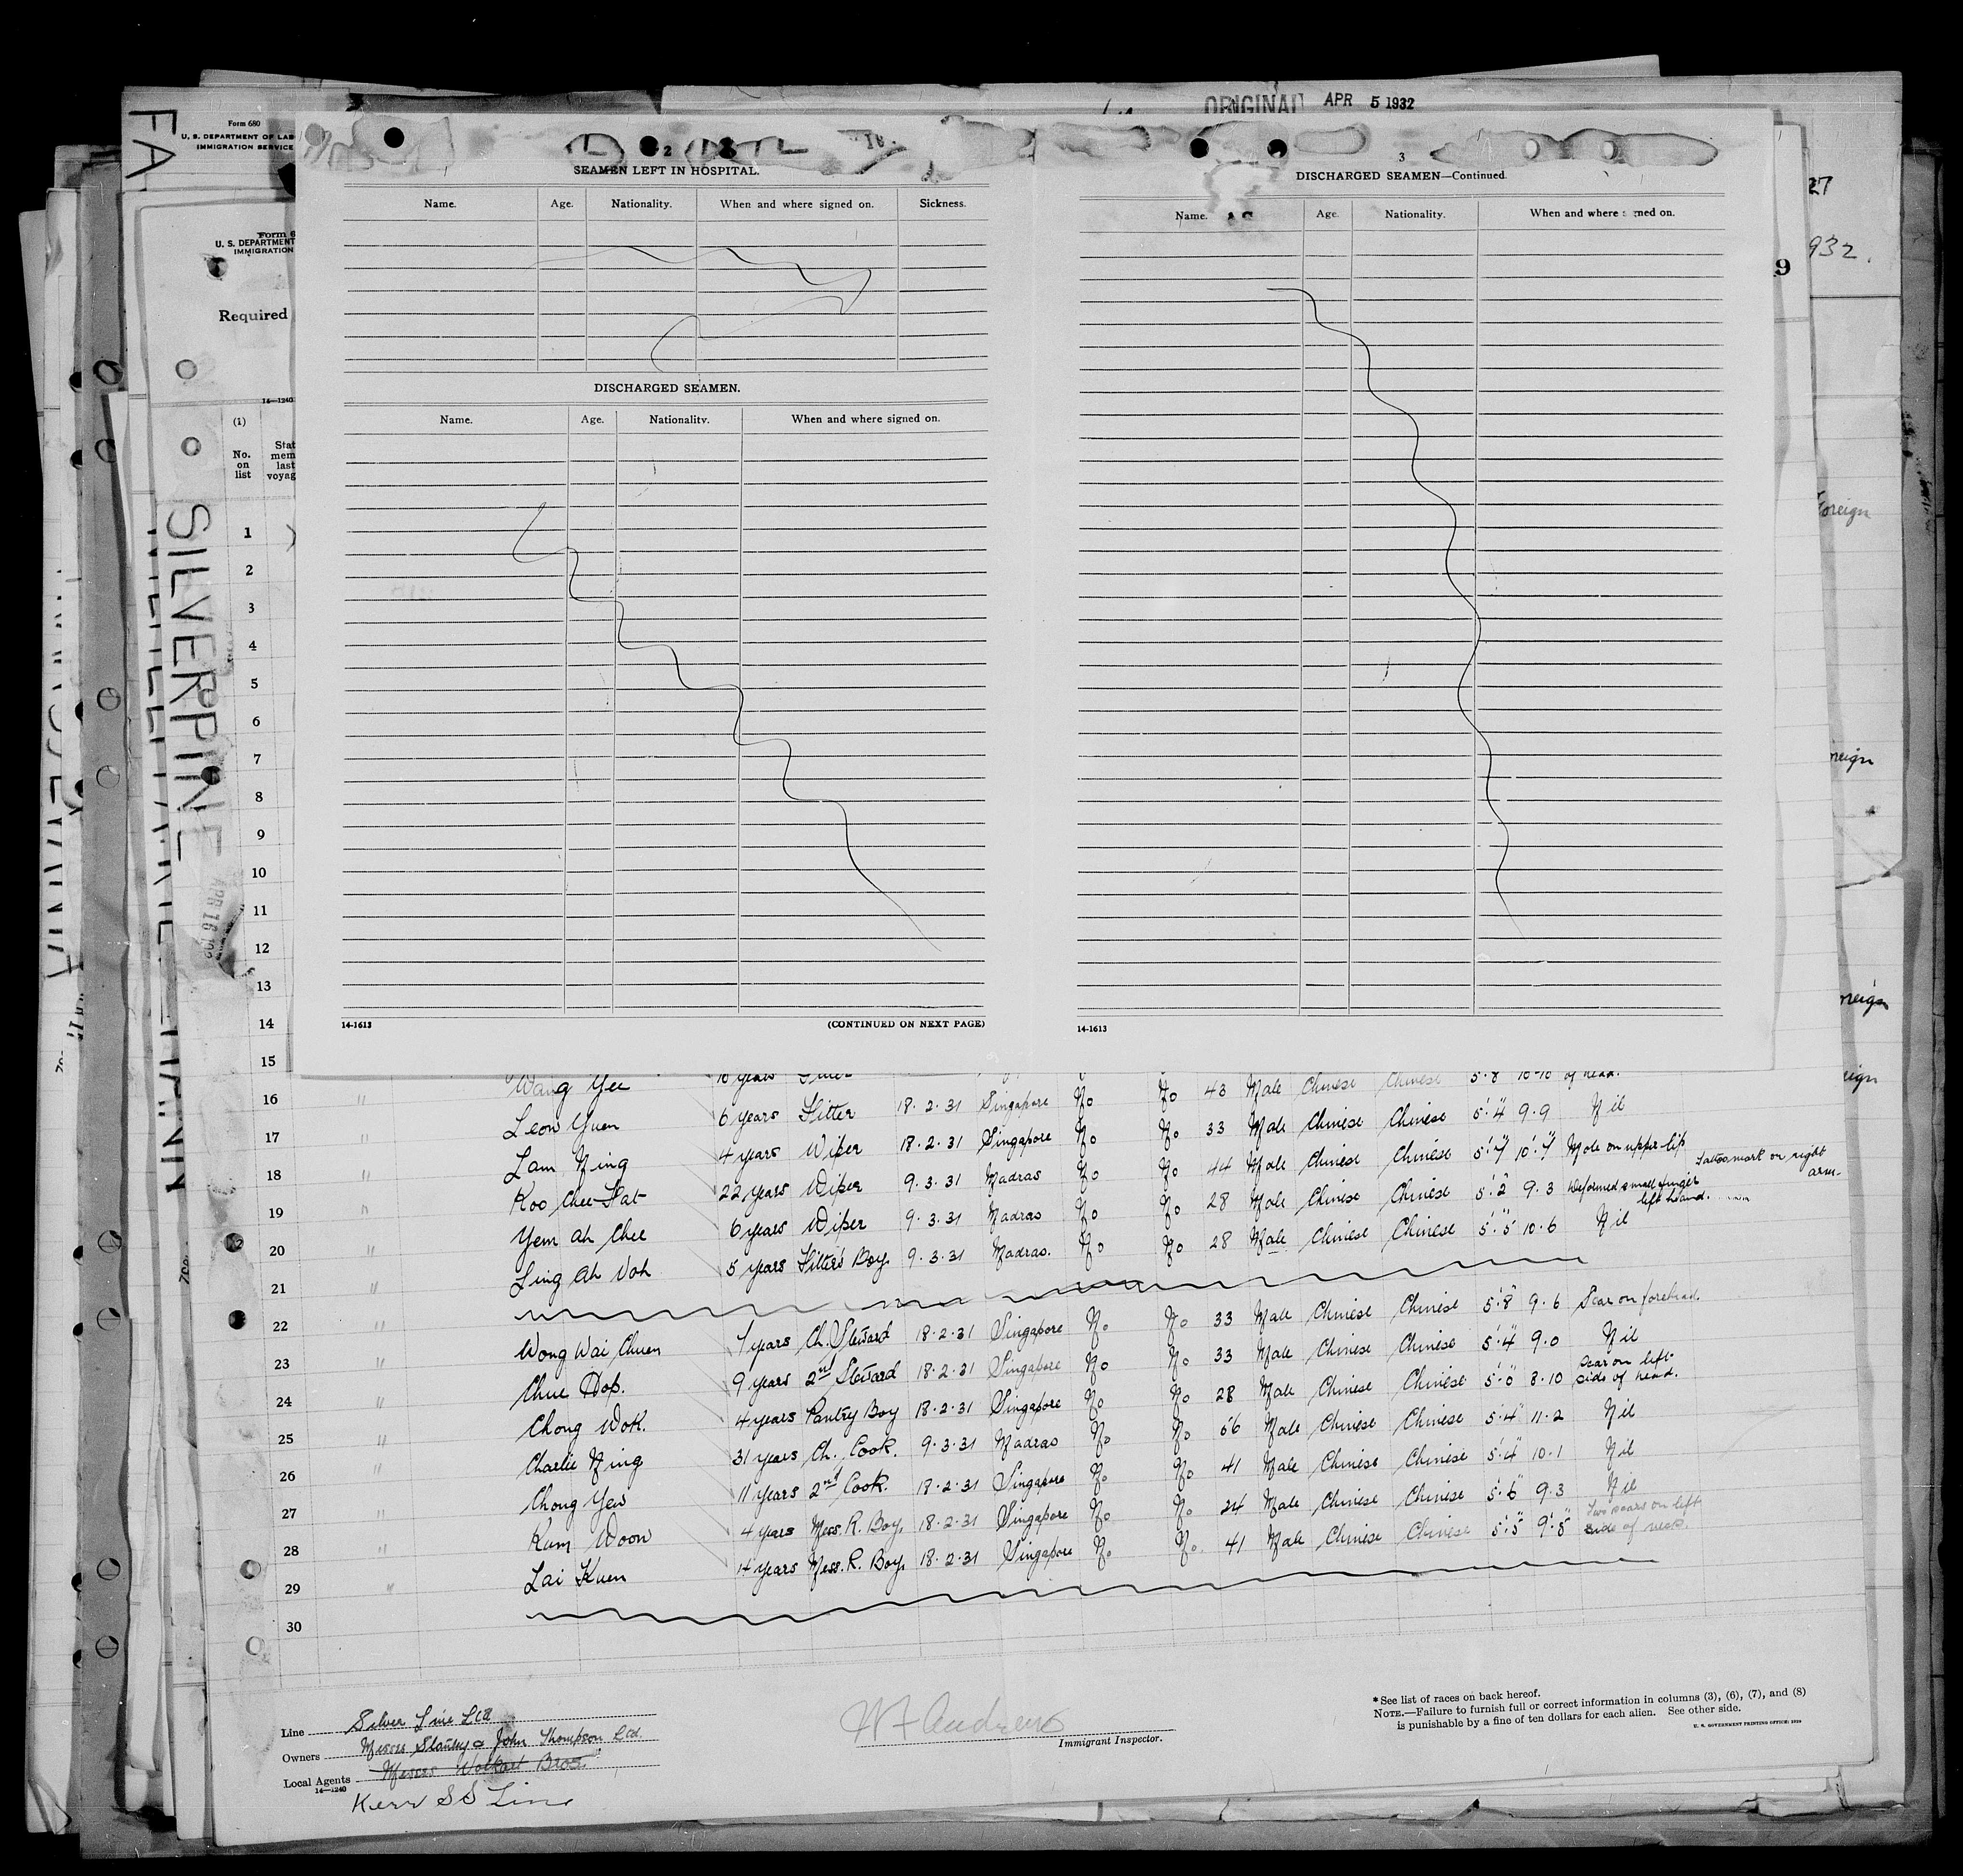 ORIGINAL APR 5 1932
FA
Form 680
U. S. DEPARTMENT OF LAB
IMMIGRATION SERVICE
27
932.
9
U. S. DEPARTMENT
IMMIGRATION
Required
14—1240
(1)
No.
on
list
Stat
mem
last
voyag
SILVERPINE
1
2
3
4
5
6
7
8
9
10
11
12
13
14
15
2
SEAMEN LEFT IN HOSPITAL.
Name. Age. Nationality. When and where signed on. Sickness.
DISCHARGED SEAMEN.
Name. Age. Nationality. When and where signed on.
14-1613 (CONTINUED ON NEXT PAGE)
3
DISCHARGED SEAMEN—Continued.
Name. Age. Nationality. When and where signed on.
14-1613
Foreign
oreign
oreign
eign
Wang Yee 10 years No 43 Male Chinese Chinese 5'·8" 10-10 of head.
16 " Leon Yuen 6 years Fitter 18·2·31 Singapore No No 33 Male Chinese Chinese 5'·4" 9·9 Nil
17 " Lam Ning 4 years Wiper 18·2·31 Singapore No No 44 Male Chinese Chinese Mole on upper lip
18 " Koo Chee Fat 22 years Wiper 9·3·31 Madras No No 28 Male Chinese Chinese 5'·2" 9·3 Deformed small finger left hand. Tattoo mark on right arm.
19 " Yem Ah Chee 6 years Wiper 9·3·31 Madras No No 28 Male Chinese Chinese 5'·5" 10·6 Nil
20 " Ling Ah Voh 5 years Fitter's Boy. 9·3·31 Madras. No
21 "
22 " Wong Wai Chuen 7 years Ch. Steward 18·2·31 Singapore No No 33 Male Chinese Chinese 5'·8" 9·6 Scar on forehead.
23 " Chue Hop. 9 years 2nd Steward 18·2·31 Singapore No No 33 Male Chinese Chinese 5'·4" 9·0 Nil
24 " Chong Wok. 4 years Pantry Boy 18·2·31 Singapore No No 28 Male Chinese Chinese 5'·0" 8·10 Scar on left side of head.
25 " Charlie Ning 31 years Ch. Cook. 9·3·31 Madras No No 56 Male Chinese Chinese 5'·4" 11·2 Nil
26 " Chong Yew 11 years 2nd Cook. 18·2·31 Singapore No No 41 Male Chinese Chinese 5'·4" 10·1 Nil
27 " Kum Woon 4 years Mess. R. Boy. 18·2·31 Singapore No No 24 Male Chinese Chinese 5'·6" 9·3 Nil
28 " Lai Kuen 14 years Mess. R. Boy. 18·2·31 Singapore No No. 41 Male Chinese Chinese 5'·5" 9'·8" Two scars on left side of neck.
29 "
30
Line Silver Line Ltd
Owners Messrs Stanley & John Thompson Ltd
Local Agents Messrs Volkart Bros.
14—1240
Kerr S S Line
W F Andrews
Immigrant Inspector.
* See list of races on back hereof.
NOTE.—Failure to furnish full or correct information in columns (3), (6), (7), and (8)
is punishable by a fine of ten dollars for each alien. See other side.
U. S. GOVERNMENT PRINTING OFFICE: 1929